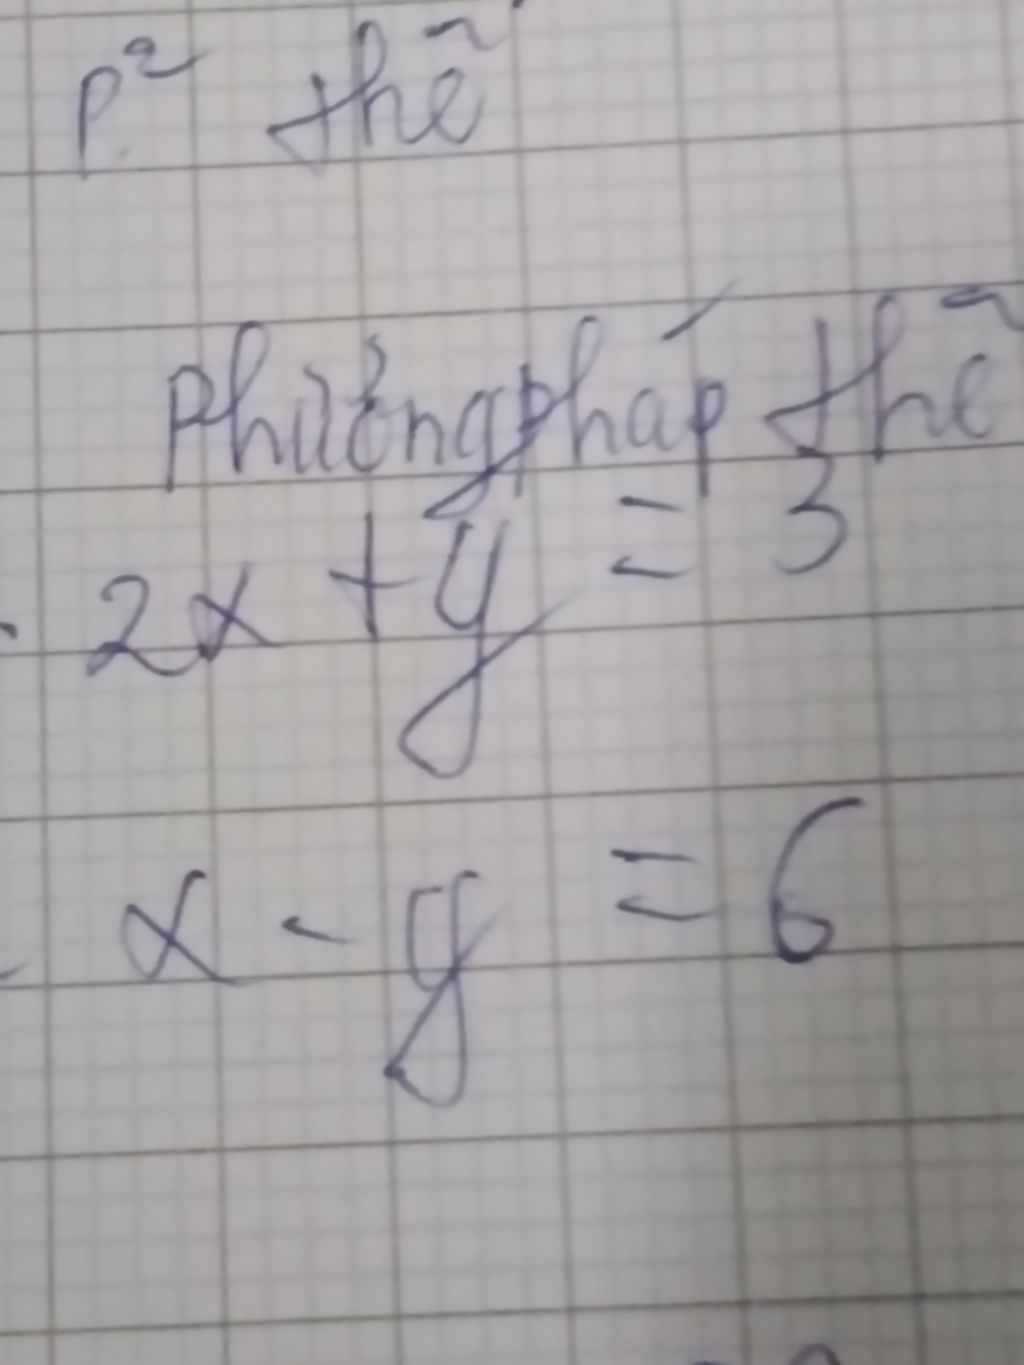 p² thễ
Phưởngpháp thễ
2x + y = 3
x - y = 6